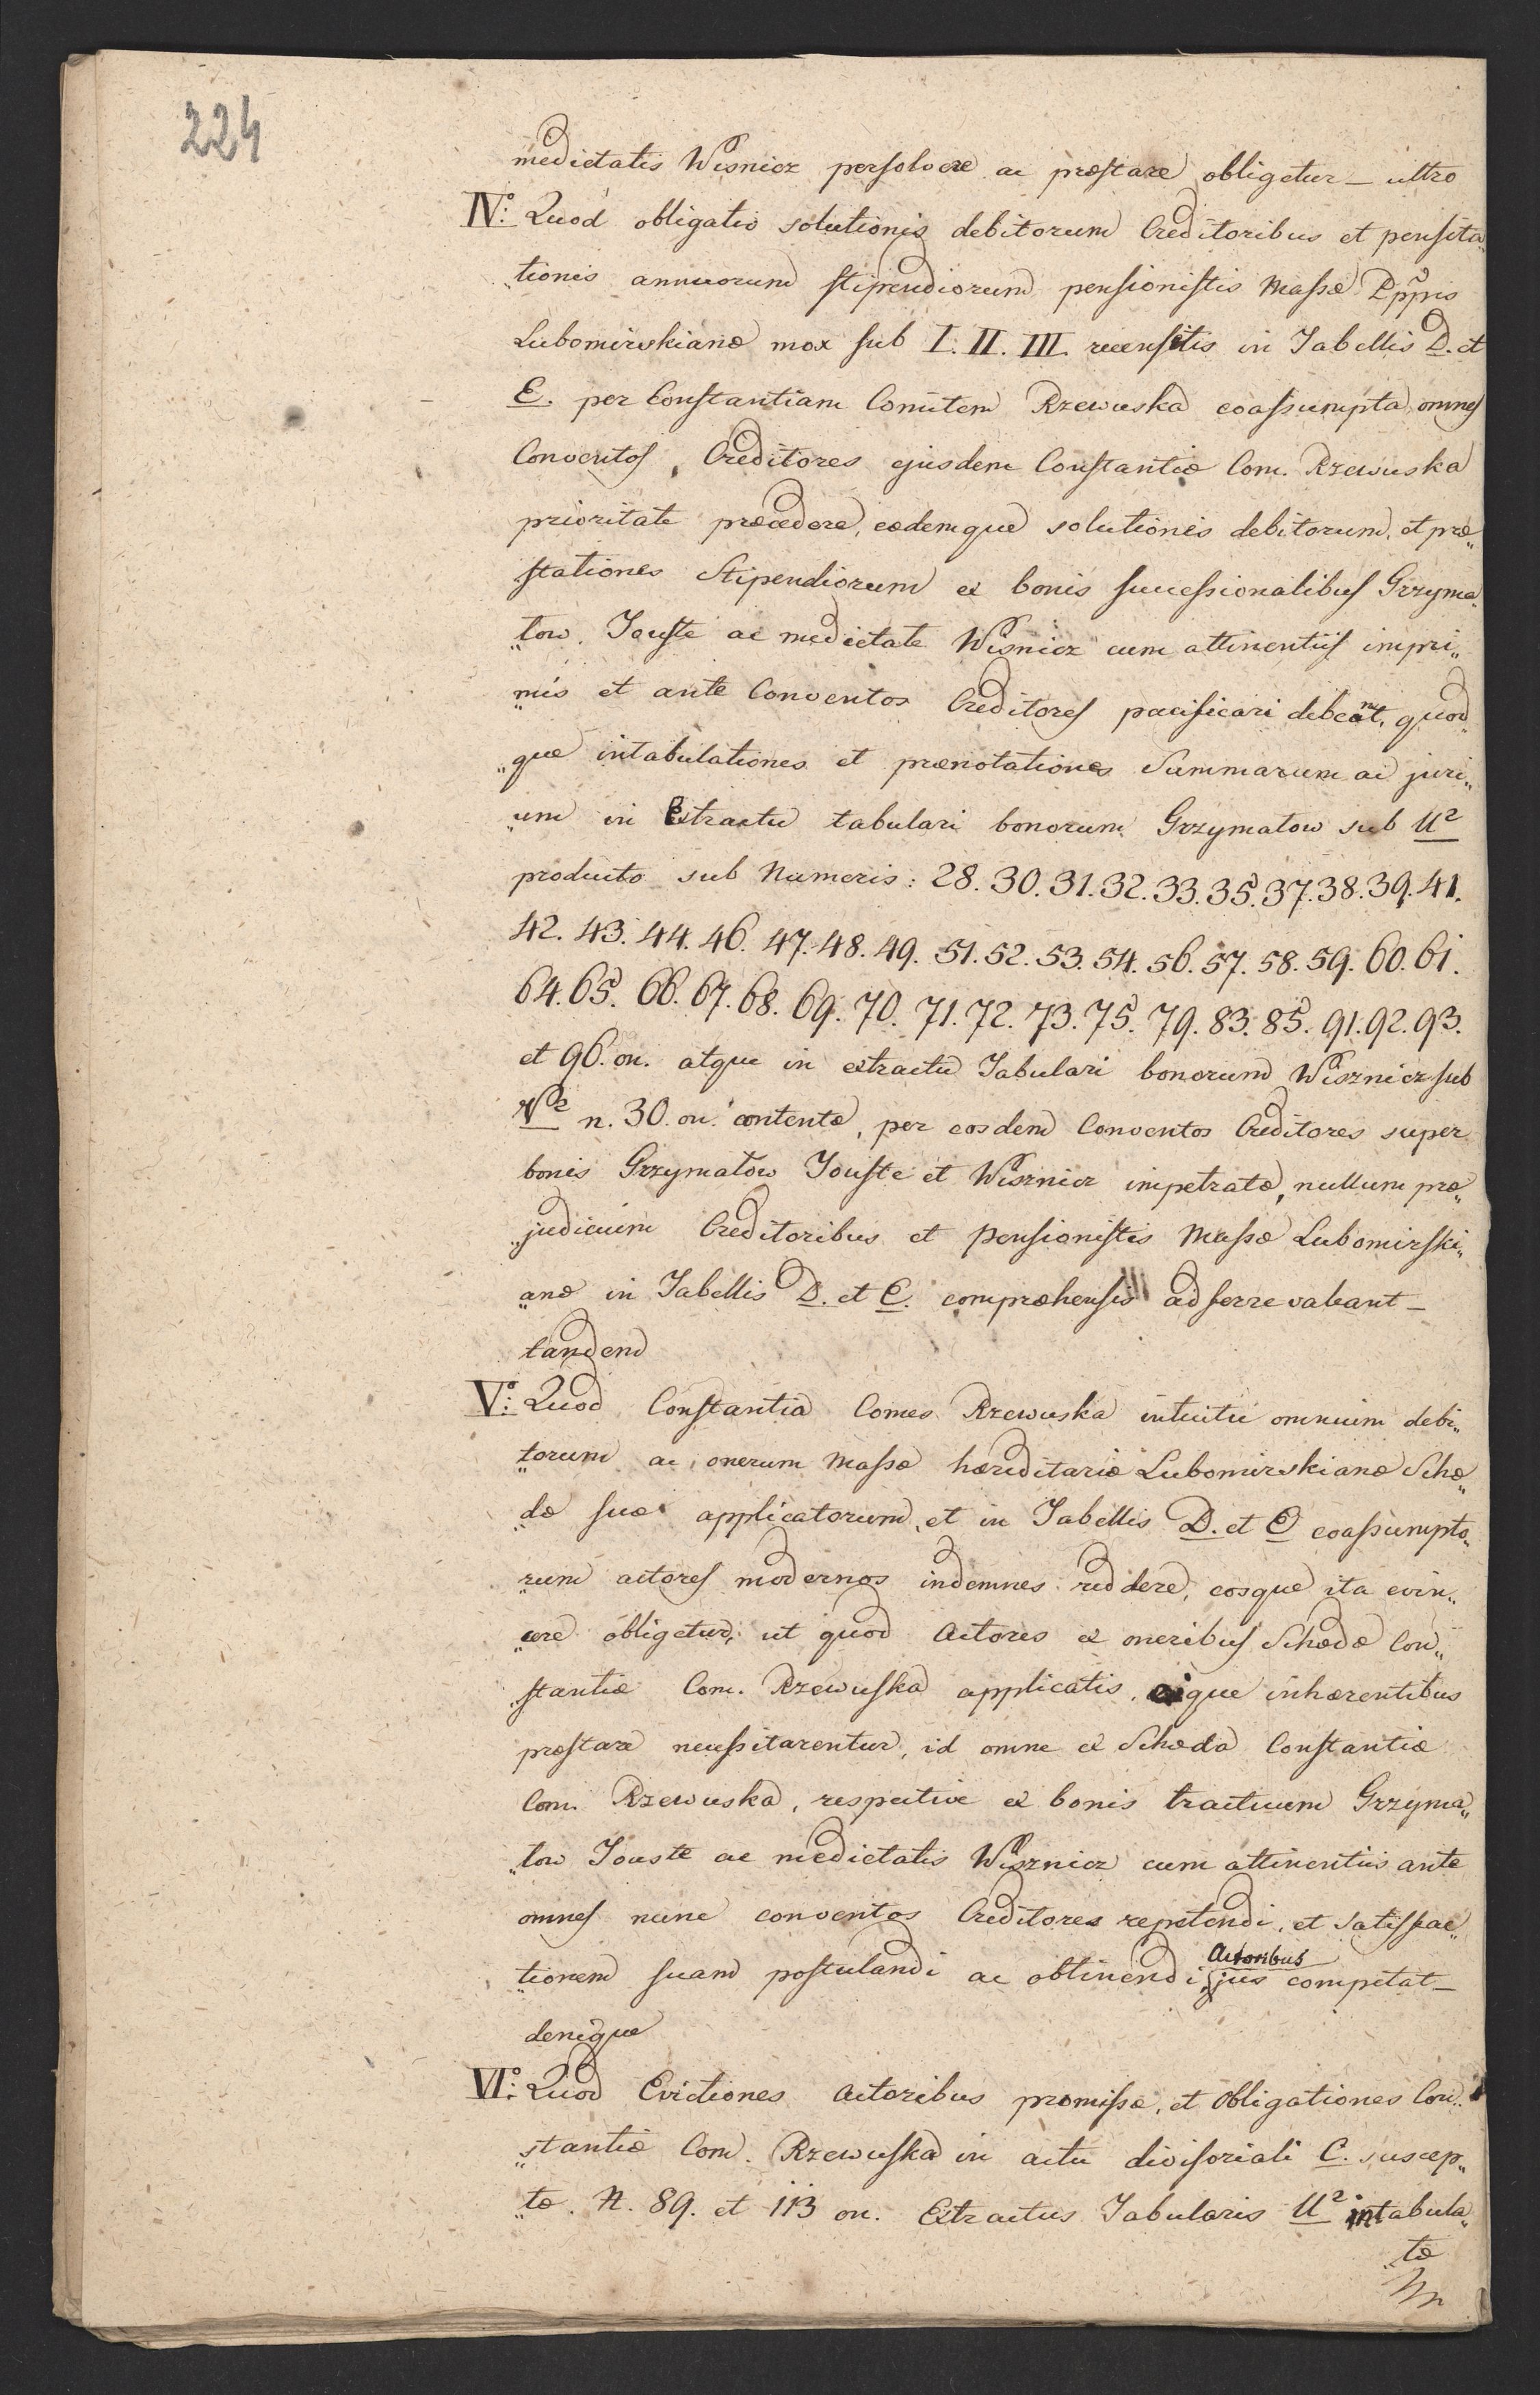 224
medietatis Wisnicz persolvere ac præstare obligetur — ultro
IV.° Quod obligatio solutionis debitorum Creditoribus et pensita„
„tionis annuorum stipendiorum pensionistis Massæ Pppis
Lubomirskianæ mox sub I. II. III. recensitis in Tabellis D. et
E. per Constantiam Comitem Rzewuska coassumpta, omnes
Conventos Creditores ejusdem Constantiæ Com. Rzewuska
prioritate præcedere, eædemque solutiones debitorum, et præ„
stationes Stipendiorum ex bonis successionalibus Grzyma„
„tow. Touste ac medietate Wisnicz cum attinentiis impri„
„mis et ante Conventos Creditores pacificari debeant, quod„
„que intabulationes et prænotationes Summarum ac juri„
„um in Extractu tabulari bonorum Grzymatow sub U²
producto sub Numeris: 28. 30. 31. 32. 33. 35. 37. 38. 39. 41.
42. 43. 44. 46. 47. 48. 49. 51. 52. 53. 54. 56. 57. 58. 59. 60. 61.
64. 65. 66. 67. 68. 69. 70. 71. 72. 73. 75. 79. 83. 85. 91. 92. 93.
et 96. on. atque in extractu Tabulari bonorum Wisznicz sub
n. 30. on. contentæ, per eosdem Conventos Creditores super
bonis Grzymatow Touste et Wisznicz impetratæ, nullum præ„
„judicium Creditoribus et pensionistis Massæ Lubomirski„
„anæ in Tabellis D. et E. compræhensis adferre valeant —
tandem
V.° Quod Constantia Comes Rzewuska intuitu omnium debi„
„torum ac onerum Massæ hæreditariæ Lubomirskianæ Schæ„
„dæ suæ applicatorum, et in Tabellis D. et E coassumpto„
„rum actores modernos indemnes reddere, eosque ita evin„
„cere obligetur, ut quod Actores ex oneribus Schædæ Con„
„stantiæ Com. Rzewuska applicatis, eique inhærentibus
præstare necessitarentur, id omne ex Schæda Constantiæ
Com. Rzewuska, respective ex bonis tractuum Grzyma„
„tow Touste ac medietatis Wisznicz cum attinentiis ante
omnes nunc conventos Creditores repetendi, et satisfac„
„tionem suam postulandi ac obtinendi Actoribus jus competat —
denique
VI.° Quod Evictiones Actoribus promissæ, et obligationes Con„
„stantiæ Com. Rzewuska in actu divisoriali C. suscep„
„tæ N. 89. et 113 on. Extractus Tabularis U² intabula„
„tæ